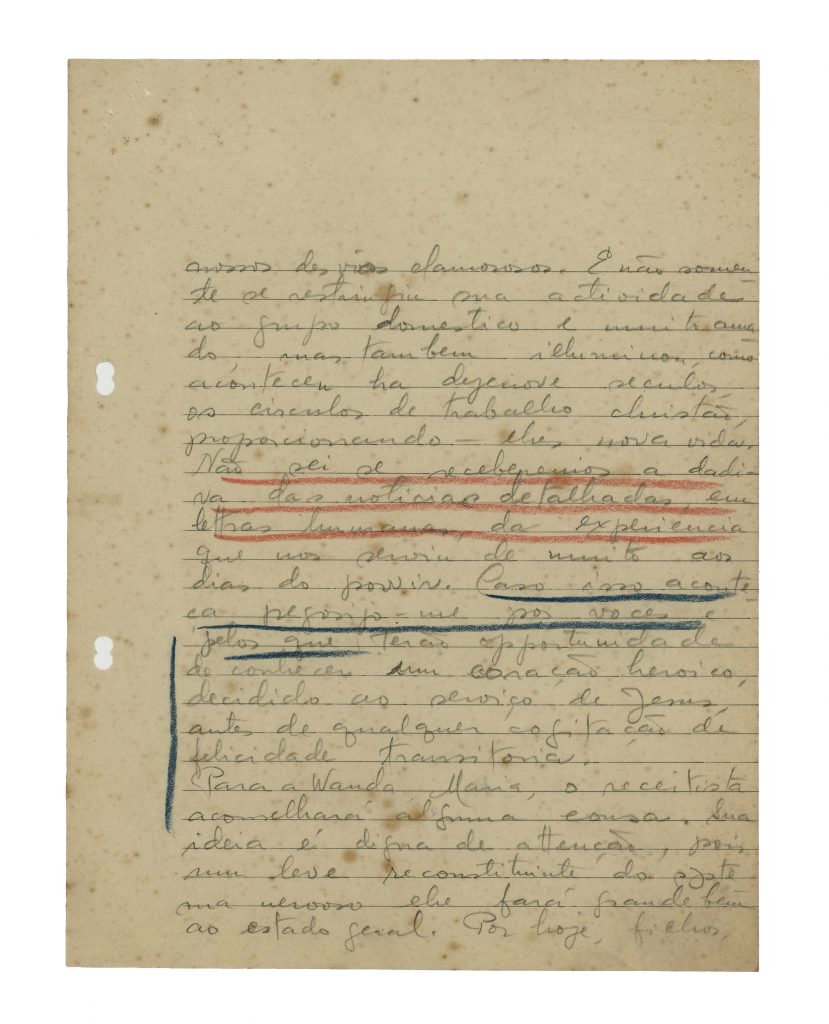 nossos desvios clamorosos. E não somen-
te se restringiu sua actividade
ao grupo domestico e muito ama
do, mas tambem illuminou, como
aconteceu ha dezenove seculos,
os circulos de trabalho christão,
proporcionando-lhes nova vida.
Não sei se receberemos a dadi
va das noticias detalhadas, em
lettras humanas, da experiencia
que nos serviu de muito aos
dias do porvir. Caso isso aconte-
ça regosijo-me por voces e
pelos que terão opportunidade
de conhecer um coração heroico,
decidido ao serviço de Jesus,
antes de qualquer cogitação de
felicidade transitoria.
Para a Wanda Maria, o receitista
aconselhará alguma cousa. Sua
ideia é digna de attenção, pois
um leve reconstituinte do syste
ma nervoso lhe fará grande bem
ao estado geral. Por hoje, filhos,